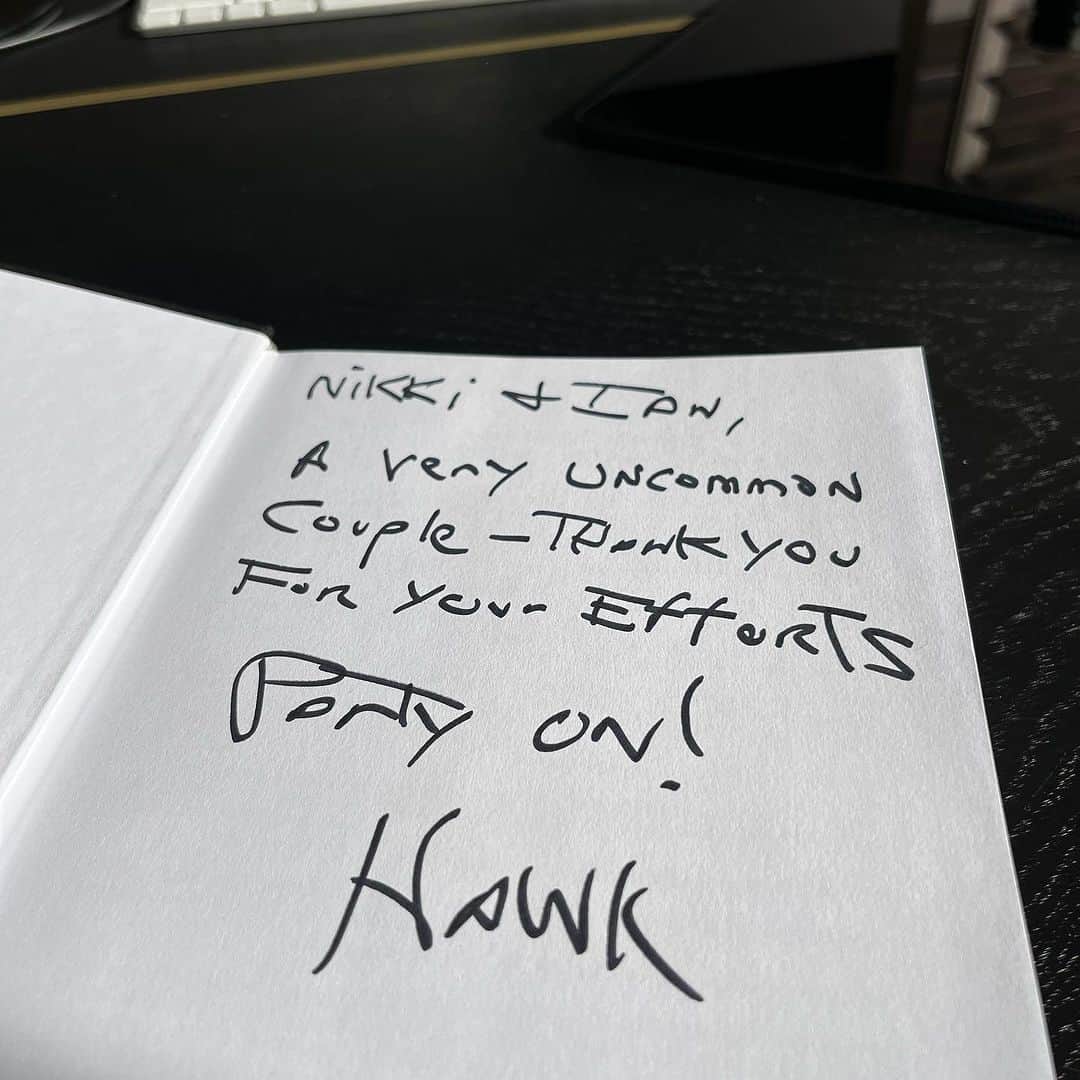 Nikki & Ian,
A very uncommon
Couple - Thank you
For your Efforts
Party on!
Hawk